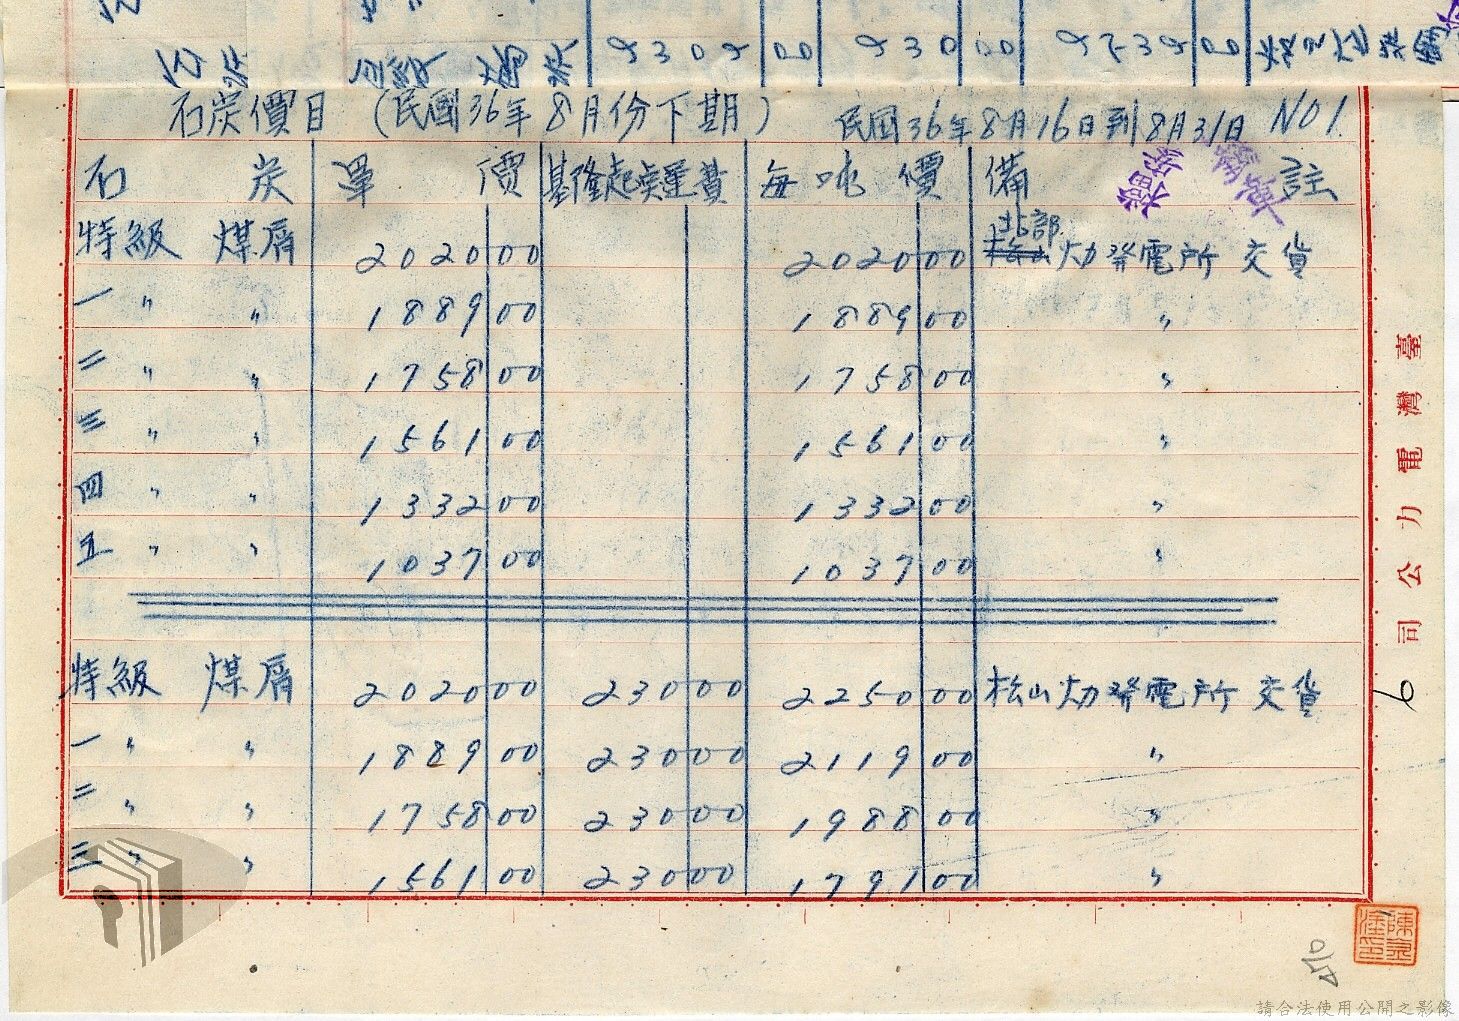 石炭價目（民國36年8月份下期） 民國36年8月16日到8月31日 NO1.
石炭 單價 基隆起卸運費 每吨價 備註
特級 煤屑 2020 00 2020 00 北部火力發電所 交貨
一 〃 〃 1889 00 1889 00 〃
二 〃 〃 1758 00 1758 00 〃
三 〃 〃 1561 00 1561 00 〃
四 〃 〃 1332 00 1332 00 〃
五 〃 〃 1037 00 1037 00 〃
特級 煤屑 2020 00 230 00 2250 00 松山火力發電所 交貨
一 〃 〃 1889 00 230 00 2119 00 〃
二 〃 〃 1758 00 230 00 1988 00 〃
三 〃 〃 1561 00 230 00 1791 00 〃
臺灣電力公司
6
請合法使用公開之影像